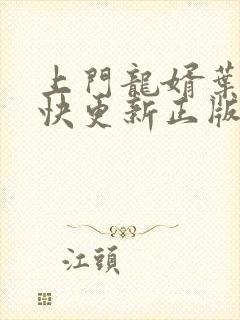 上門龍婿葉
快更新正版
江頭